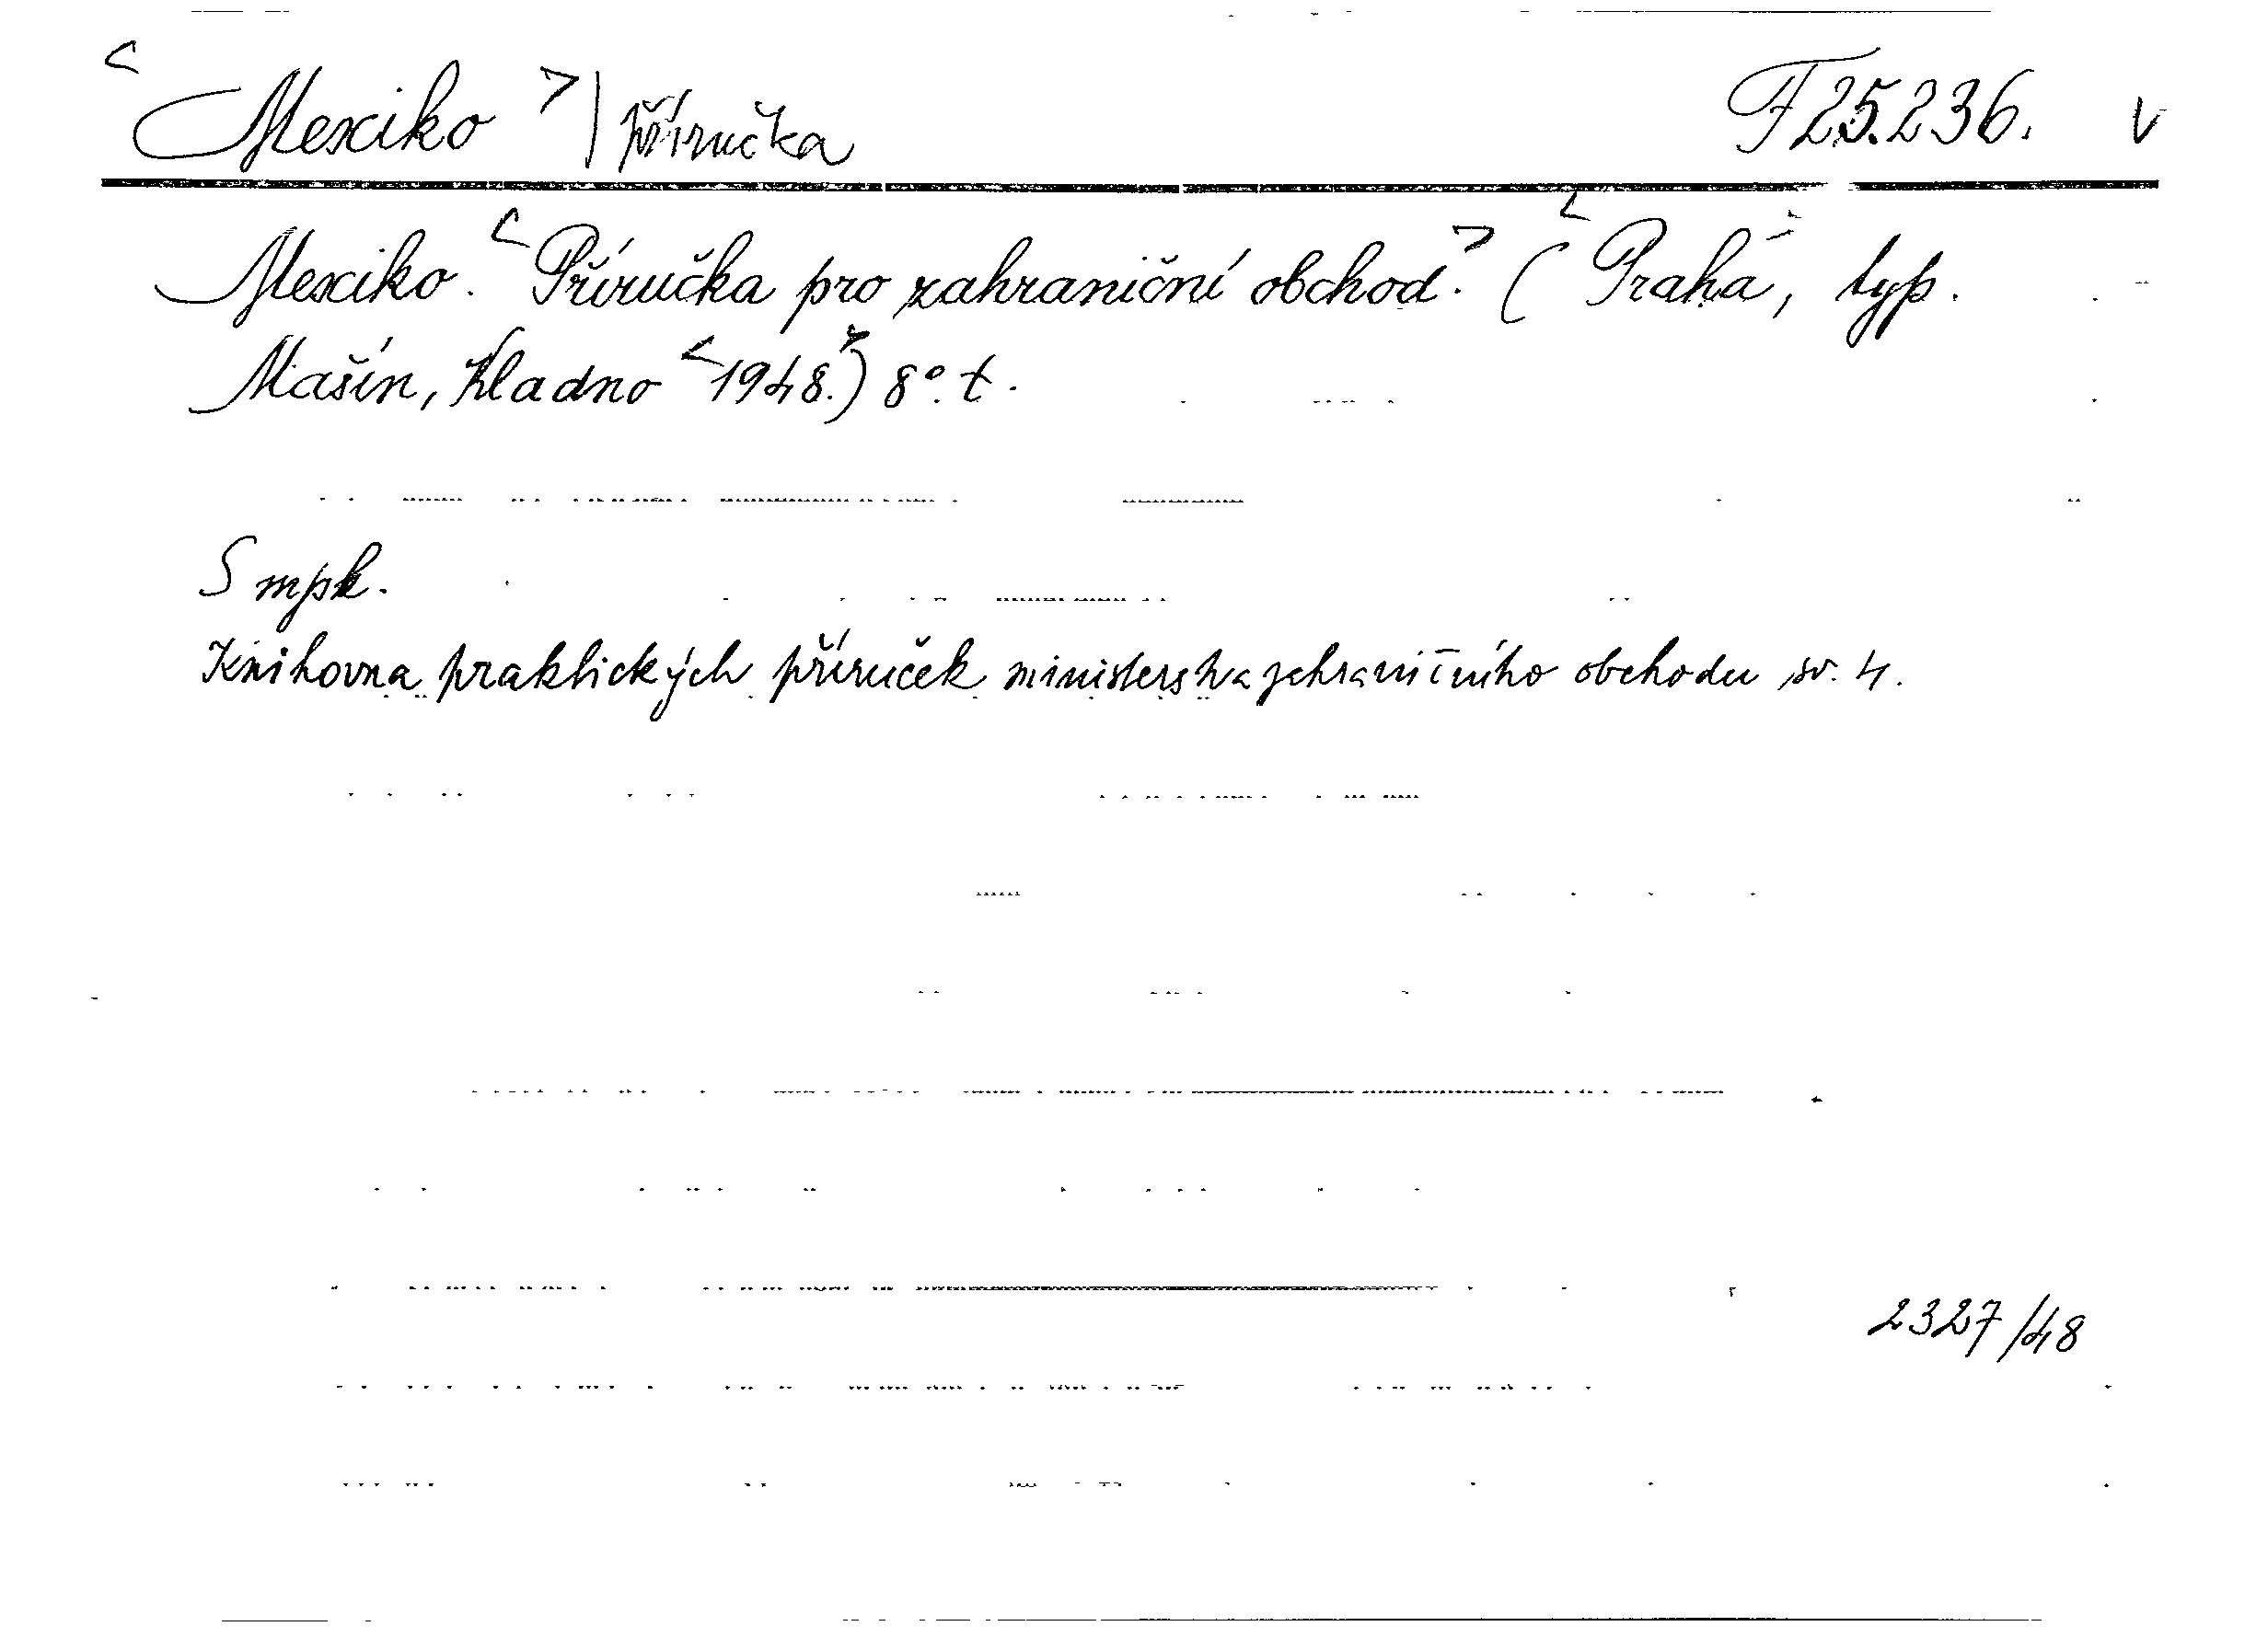 <Mexiko>| příručka F 25.236. v
Mexiko. <Příručka pro zahraniční obchod.> (<Praha>, typ.
Mašín, Kladno <1948.>) 8°. t.
S mpk.
Knihovna praktických příruček ministerstva zahraničního obchodu sv. 4.
2327/48